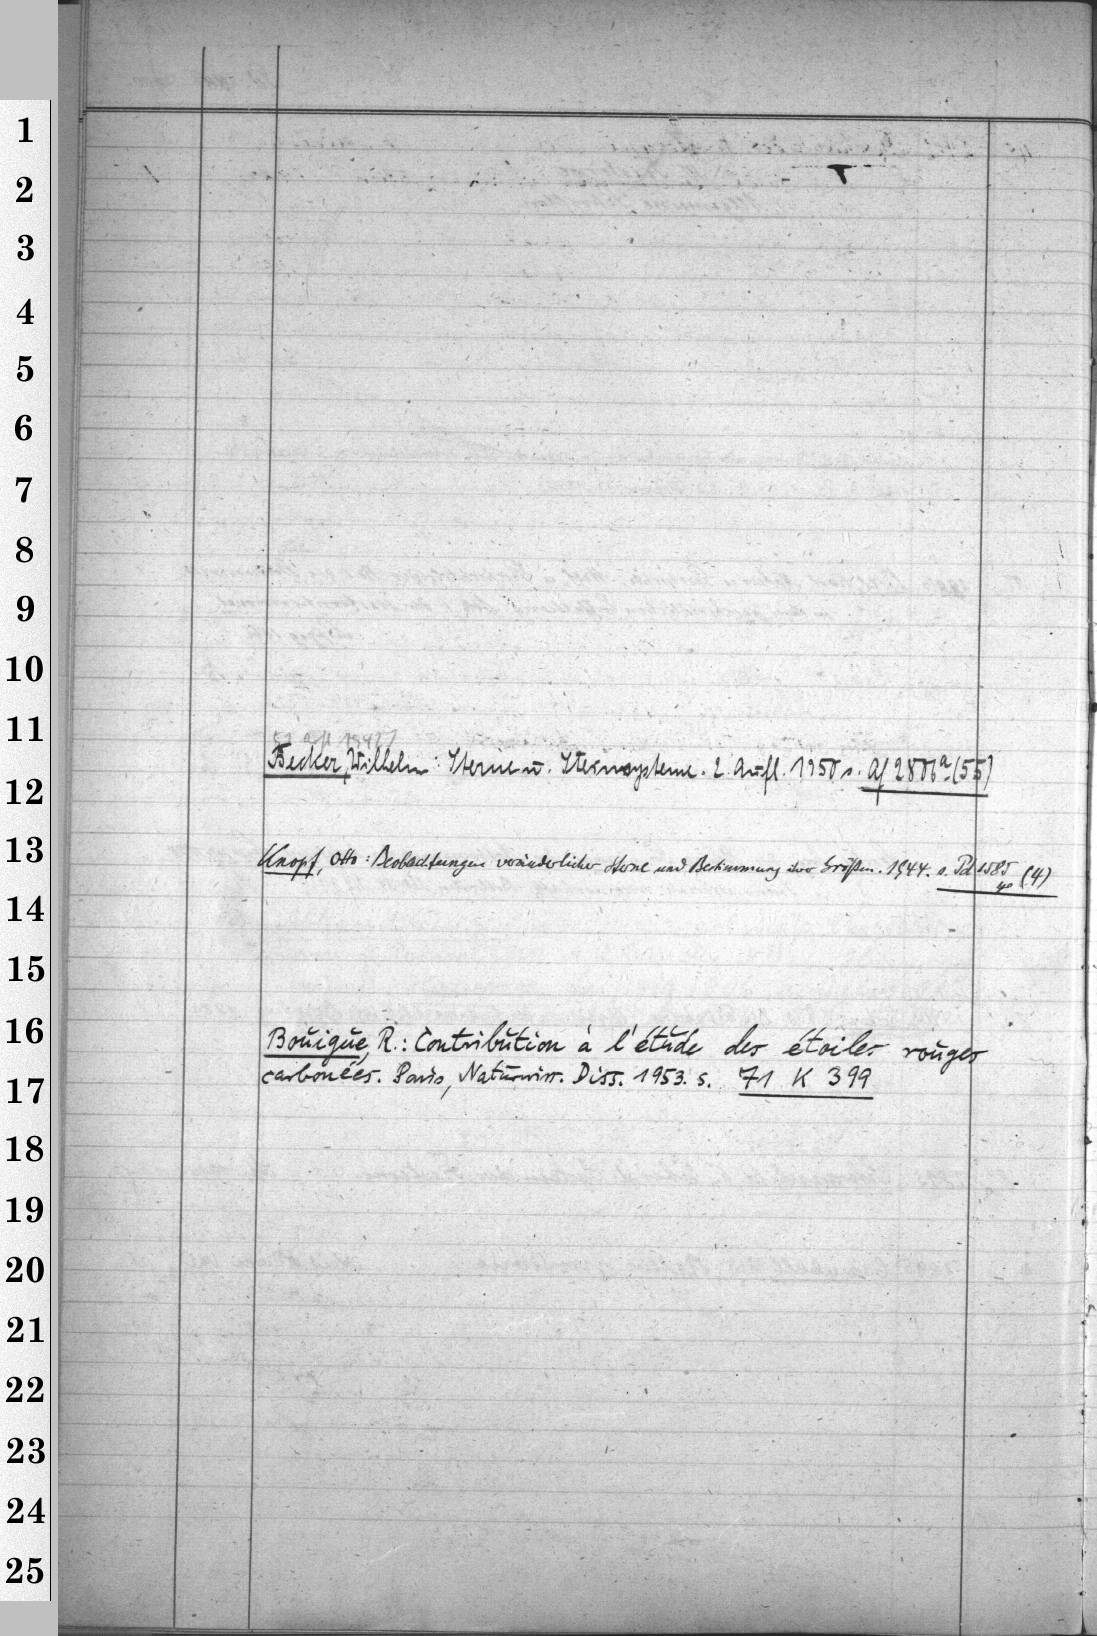 1
2
3
4
5
6
7
8
9
10
11
12
Becker, Wilhelm: Sterne u. Sternsysteme. 2. Aufl. 1950 s. Af 2806ª (55)
13
Knopf, Otto: Beobachtungen veränderlicher Sterne und Bestimmung ihrer Größen. 1944. s. Pd 1585 4° (4)
14
15
16
Bouigue, R.: Contribution à l'étude des étoiles rouges
carbonées. Paris, Naturwiss. Diss. 1953. s. 71 K 399
17
18
19
20
21
22
23
24
25